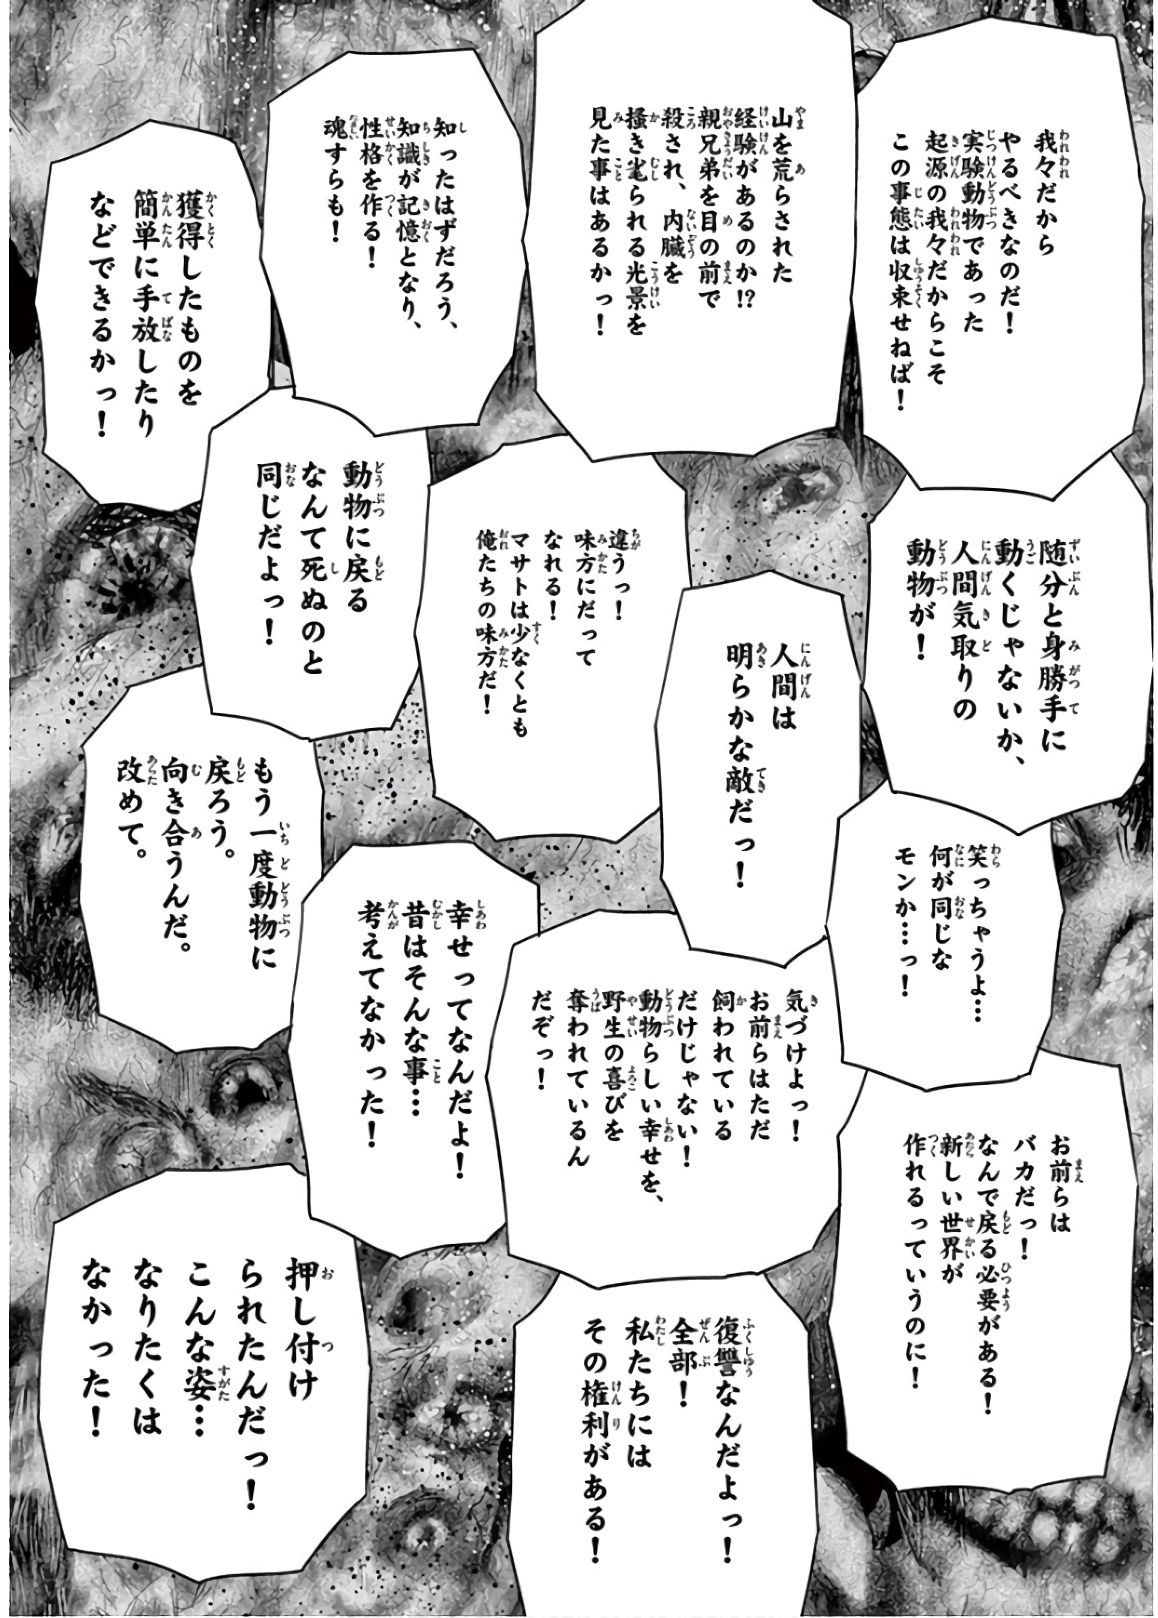 我々だから
やるべきなのだ！
実験動物であった
起源の我々だからこそ
この事態は収束せねば！
山を荒らされた
経験があるのか!?
親兄弟を目の前で
殺され、内臓を
掻き毟られる光景を
見た事はあるかっ！
知ったはずだろう、
知識が記憶となり、
性格を作る！
魂すらも！
獲得したものを
簡単に手放したり
などできるかっ！
随分と身勝手に
動くじゃないか、
人間気取りの
動物が！
人間は
明らかな敵だっ！
違うっ！
味方にだって
なれる！
マサトは少なくとも
俺たちの味方だ！
動物に戻る
なんて死ぬのと
同じだよっ！
笑っちゃうよ…
何が同じな
モンか…っ！
もう一度動物に
戻ろう。
向き合うんだ。
改めて。
気づけよっ！
お前らはただ
飼われている
だけじゃない！
動物らしい幸せを、
野生の喜びを
奪われているん
だぞっ！
幸せってなんだよ！
昔はそんな事…
考えてなかった！
お前らは
バカだっ！
なんで戻る必要がある！
新しい世界が
作れるっていうのに！
復讐なんだよっ！
全部！
私たちには
その権利がある！
押し付け
られたんだっ！
こんな姿…
なりたくは
なかった！